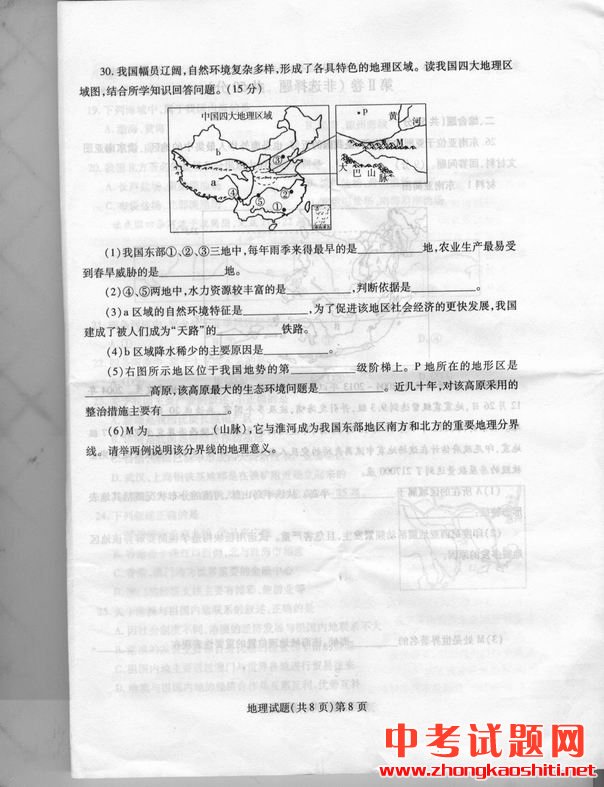 30. 我国幅员辽阔,自然环境复杂多样,形成了各具特色的地理区域。读我国四大地理区
域图,结合所学知识回答问题。(15分)
中国四大地理区域
b
a
③
④
⑤
②
①
P
黄
河
M
大
巴
山
脉
(1)我国东部①、②、③三地中,每年雨季来得最早的是________地,农业生产最易受
到春旱威胁的是________地。
(2)④、⑤两地中,水力资源较丰富的是________,判断依据是________。
(3)a区域的自然环境特征是________,为了促进该地区社会经济的更快发展,我国
建成了被人们成为“天路”的________铁路。
(4)b区域降水稀少的主要原因是________。
(5)右图所示地区位于我国地势的第________级阶梯上。P地所在的地形区是
________高原,该高原最大的生态环境问题是________。近几十年,对该高原采用的
整治措施主要有________。
(6)M为________(山脉),它与淮河成为我国东部地区南方和北方的重要地理分界
线。请举两例说明该分界线的地理意义。
地理试题(共8页)第8页
中考试题网
www.zhongkaoshiti.net